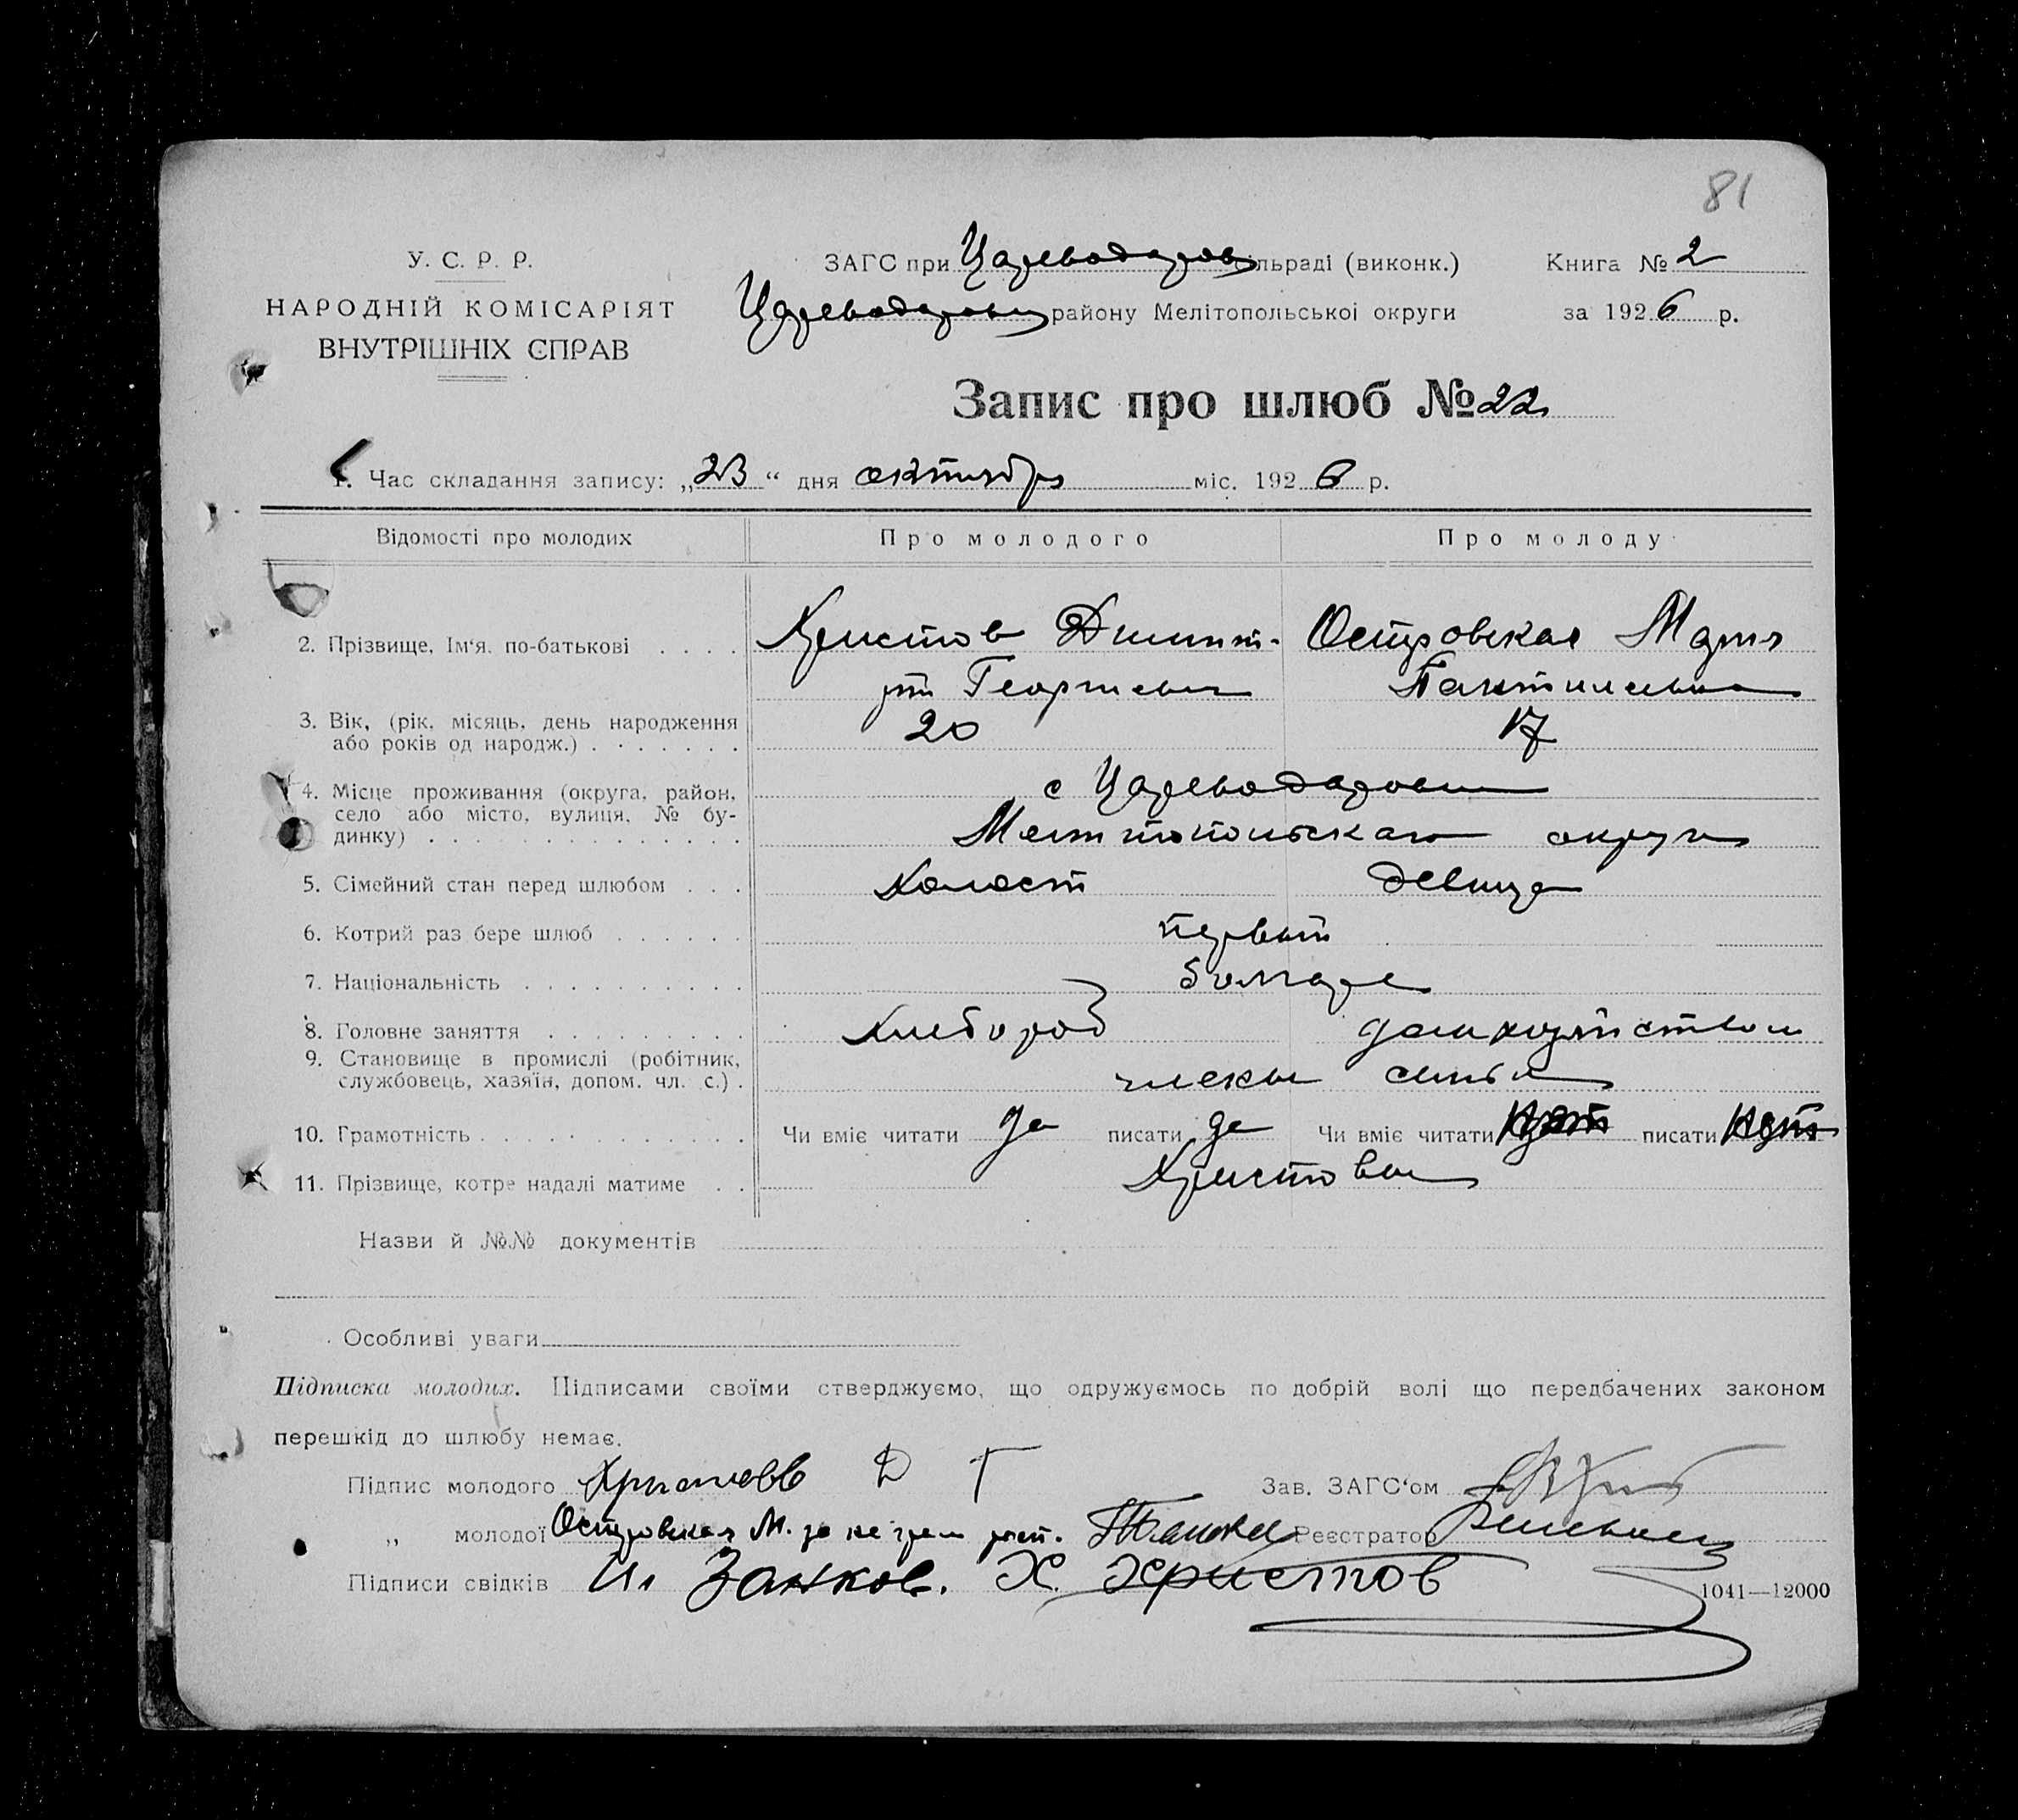 81
У. С. Р. Р.
НАРОДНІЙ КОМІСАРІЯТ
ВНУТРІШНІХ СПРАВ
ЗАГС при Цареводаров ільраді (виконк.)
Цареводаровка району Мелітопольскоі округи
Книга № 2
за 1926 р.
Запис про шлюб № 22
1. Час складання запису: „23“ дня октября міс. 1926 р.
Відомості про молодих Про молодого Про молоду
2. Прізвище, Ім‘я, по-батькові . . . . Христов Димит- Островская Мария
рий Георгиевич
3. Вік, (рік, місяць, день народження
або років од народж.) . . . . . . . 20 17
4. Місце проживання (округа, район, с Цареводаровка
село або місто, вулиця, № бу-
динку) . . . . . . . . . . . . . . Мелитопольская округа
5. Сімейний стан перед шлюбом . . . Холост девица
6. Котрий раз бере шлюб . . . . . . первый
7. Національність . . . . . . . . . . болгаре
8. Головне заняття . . . . . . . . . хлебороб домхозяйством
9. Становище в промислі (робітник,
службовець, хазяїн, допом. чл. с.) . члены семьи
10. Грамотність . . . . . . . . . . . . Чи вміє читати да писати да Чи вміє читати нет писати нет
11. Прізвище, котре надалі матиме . . Христовы
Назви й №№ документів
Особливі уваги
Підписка молодих. Підписами своїми стверджуємо, що одружуємось по добрій волі що передбачених законом
перешкід до шлюбу немає.
Підпис молодого Христовъ Д Г Зав. ЗАГС‘ом
„ молодої Островская М. за не грам расп. Реєстратор
Підписи свідків И. Занков. Х. Христов
1041—12000